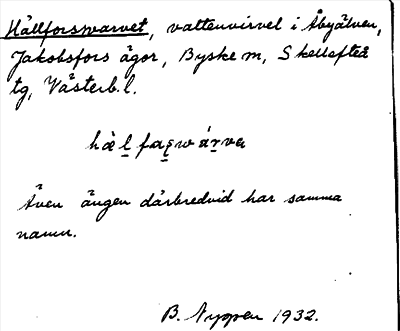 Hällforswarvet, vattenvirvel i Åbyälven,
Jakobsfors ägor, Byske sn, Skellefteå
tg, Västerb. l.
Även ängen därbredvid har samma
namn.
B. Nyppen 1932.